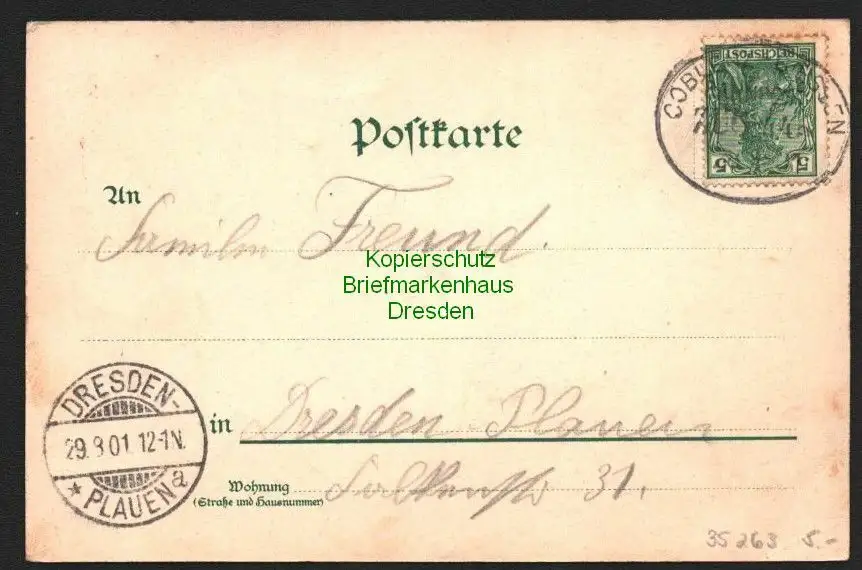 REICHSPOST
5 5
Postkarte
An
Familie Freund.
Kopierschutz
Briefmarkenhaus
Dresden
DRESDEN-
29.8.01. 12-1N.
* PLAUEN a
in Dresden Plauen
Wohnung 31.
(Straße und Hausnummer)
35263 5.-